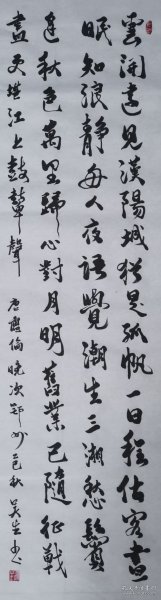 雲開遠見漢陽城猶是孤帆一日程估客晝
眠知浪靜舟人夜語覺潮生三湘愁鬢
逢秋色萬里歸心對月明舊業已隨征戰
盡更堪江上鼓鼙聲 唐盧倫晚次鄂州